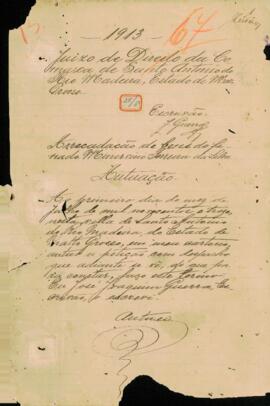 1913
67
Juizo de Direito da Co
marca de Santo Antonio do
Rio Madeira, Estado de Matto
Grosso.
Escrivão
J. Guerra
Arrecadação de do fi
nado da Silva
Autuação
Ao primeiro dia do mez de
de mil novecentos e treze,
nesta villa de Santo Antonio
do Rio Madeira, do Estado de
Matto Grosso, em meu cartorio,
autuei a petição com despacho
que adiante se vê, do que pa
ra constar, faço este termo.
Eu José Joaquim Guerra, Es
crivão, o escrevi.
Autuei